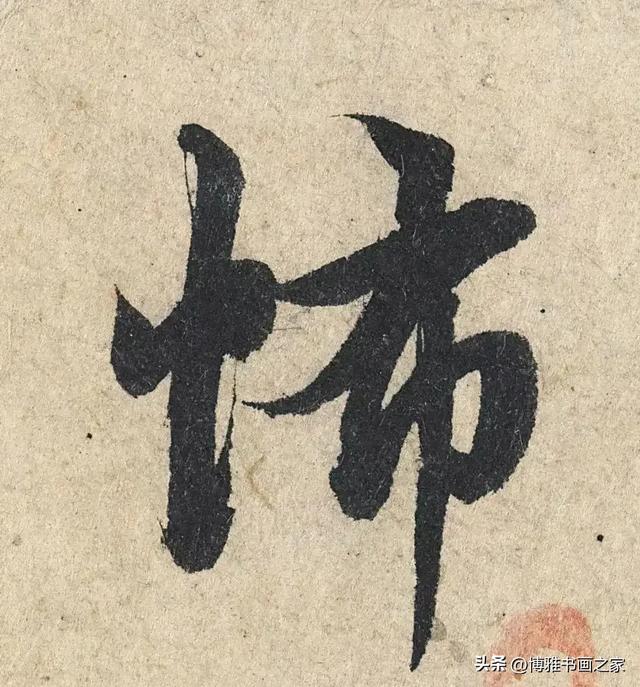 怖
头条 @博雅书画之家